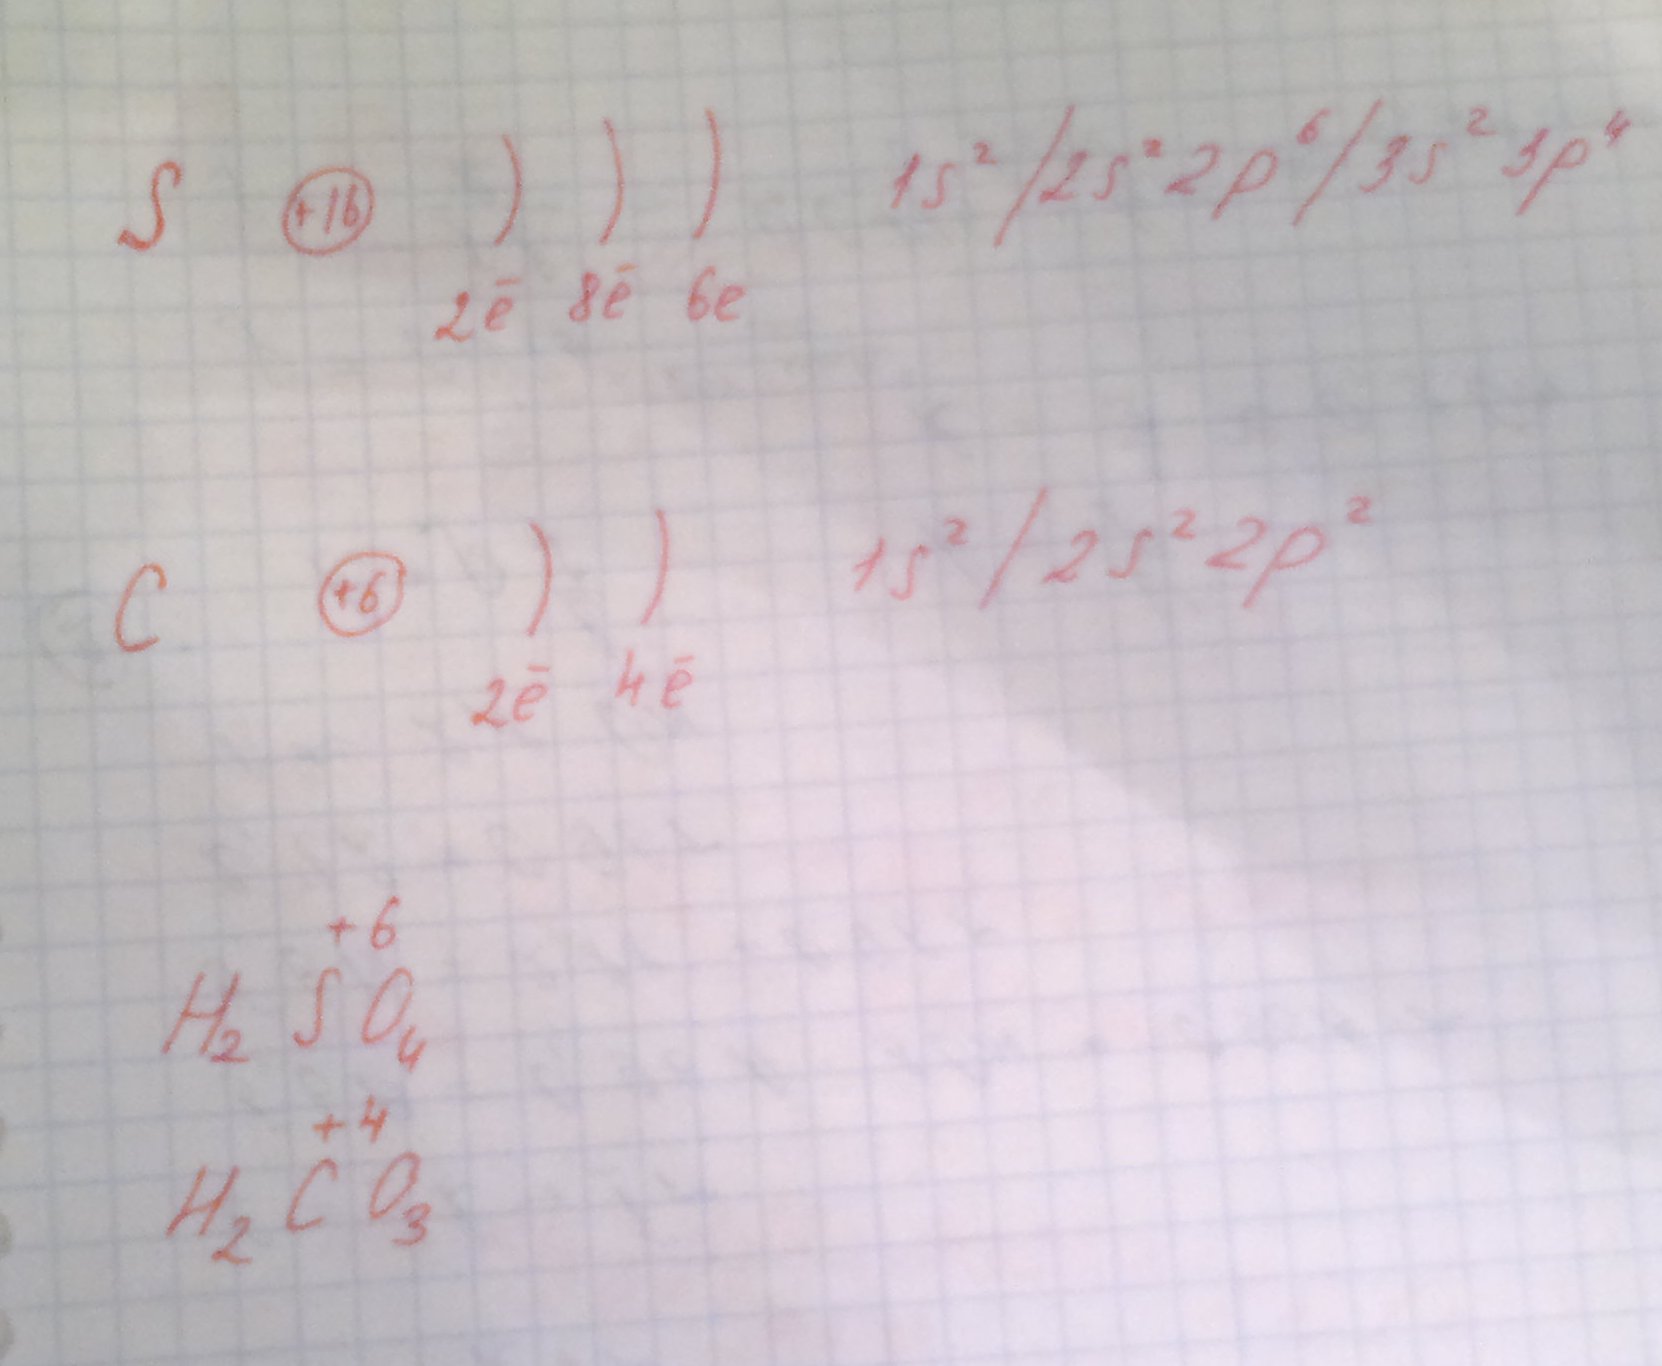 S (+16) ) ) ) 1s² / 2s² 2p⁶ / 3s² 3p⁴
2ē 8ē 6e
C (+6) ) ) 1s² / 2s² 2p²
2ē 4ē
+6
H₂SO₄
+4
H₂CO₃